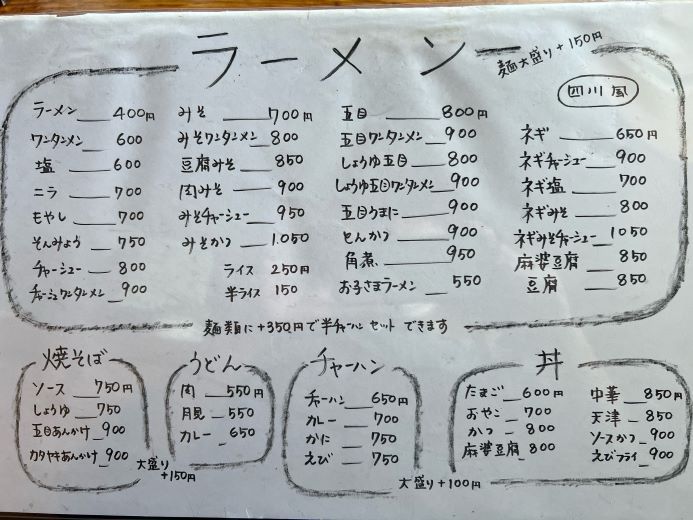 ラーメン
麺大盛り+150円
ラーメン 400円
ワンタンメン 600
塩 600
ニラ 700
もやし 700
そんみょう 750
チャーシュー 800
チャーシュワンタンメン 900
みそ 700円
みそワンタンメン 800
豆腐みそ 850
肉みそ 900
みそチャーシュー 950
みそかつ 1.050
ライス 250円
半ライス 150
五目 800円
五目ワンタンメン 900
しょうゆ五目 800
しょうゆ五目ワンタンメン 900
五目うまに 900
とんかつ 900
角煮 950
お子さまラーメン 550
四川風
ネギ 650円
ネギチャーシュー 900
ネギ塩 700
ネギみそ 800
ネギみそチャーシュー 1050
麻婆豆腐 850
豆腐 850
麺類に+350円で半チャーハンセットできます
焼そば
ソース 750円
しょうゆ 750
五目あんかけ 900
カタヤキあんかけ 900
大盛り
+150円
うどん
肉 550円
月見 550
カレー 650
チャーハン
チャーハン 650円
カレー 700
かに 750
えび 750
大盛り+100円
丼
たまご 600円
おやこ 700
かつ 800
麻婆豆腐 800
中華 850円
天津 850
ソースかつ 900
えびフライ 900